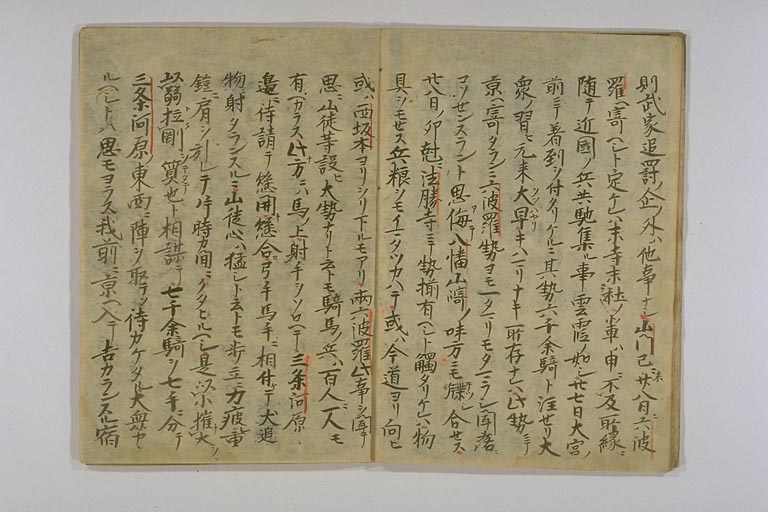 則武家追罰ノ企ノ外ハ他事ナシ山門已ニ来廿八日六波
羅ヘ寄ヘシト定ケレハ末寺末社ノ輩ハ申ニ不及所縁ニ
随テ近國ノ兵共馳集ル事雲霞ノ如シ廿七日大宮ノ
前ニテ着到ヲ付タリケルニ其勢六千余騎ト注セリ大
衆ノ習ヒ元来大早リキハニリナキ所存ナレハ此勢ニテ
京ヘ寄タランニ六波羅勢ヨモ一タマリモタマラシ聞落ニ
コソセンスラント思侮テ八幡山﨑ノ味方ニモ牒合セス
廿八日ノ卯尅ニ法勝寺ニテ勢揃有ヘシト觸タリケレハ物
具ヲモセス兵粮ヲモイマタツカハテ或ハ今道ヨリ向ヒ
或ハ西坂本ヨリヲリ下ルモアリ両六波羅此事ヲ聞テ
思ニ山徒等設ヒ大勢ナリト云トモ騎馬ノ兵ハ一百人一人モ
有ヘカラス此方ニハ馬ノ上射手ヲソロヘテ三条河原ニ
邊ニ待請テ懸開懸合弓手馬手ニ相付テ犬追
物射ニタランスルニ山徒心ハ猛シト云トモ歩立ニ力疲重
鎧ニ肩ヲ引レテ片時カ間ニクタヒルヘシ是以小摧大ノ
以弱拉剛ノ質也ト相謀テ七千余騎ヲ七手ニ分テ
三条河原ノ東西ニ陣ヲ取テ待カケタル大衆カヽ
ルヘシトハ思モヨラス我前ニ京ヘ入テ吉カランスル宿